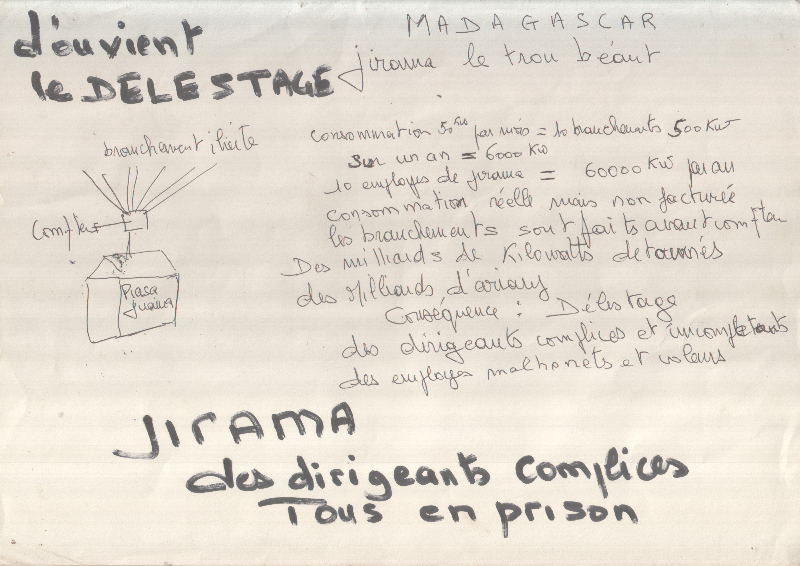 d'ęuvient
le DELESTAGE
MADAGASCAR
jirama le trou béant
branchement ilicite
Compteur
Piasa
jirama
consommation 50 par mois = 10 branchements 500 KW
Sur un an = 6000 KW
10 employes de jirama = 60000 KW par an
consommation réelle mais non facturée
les branchements sont faits avant compteur
Des milliards de Kilowatts detournés
des Milliards d'ariary
Conséquence : Délestage
des dirigeants complices et incompetants
des employes malhonets et voleurs
JIRAMA
des dirigeants complices
Tous en prison